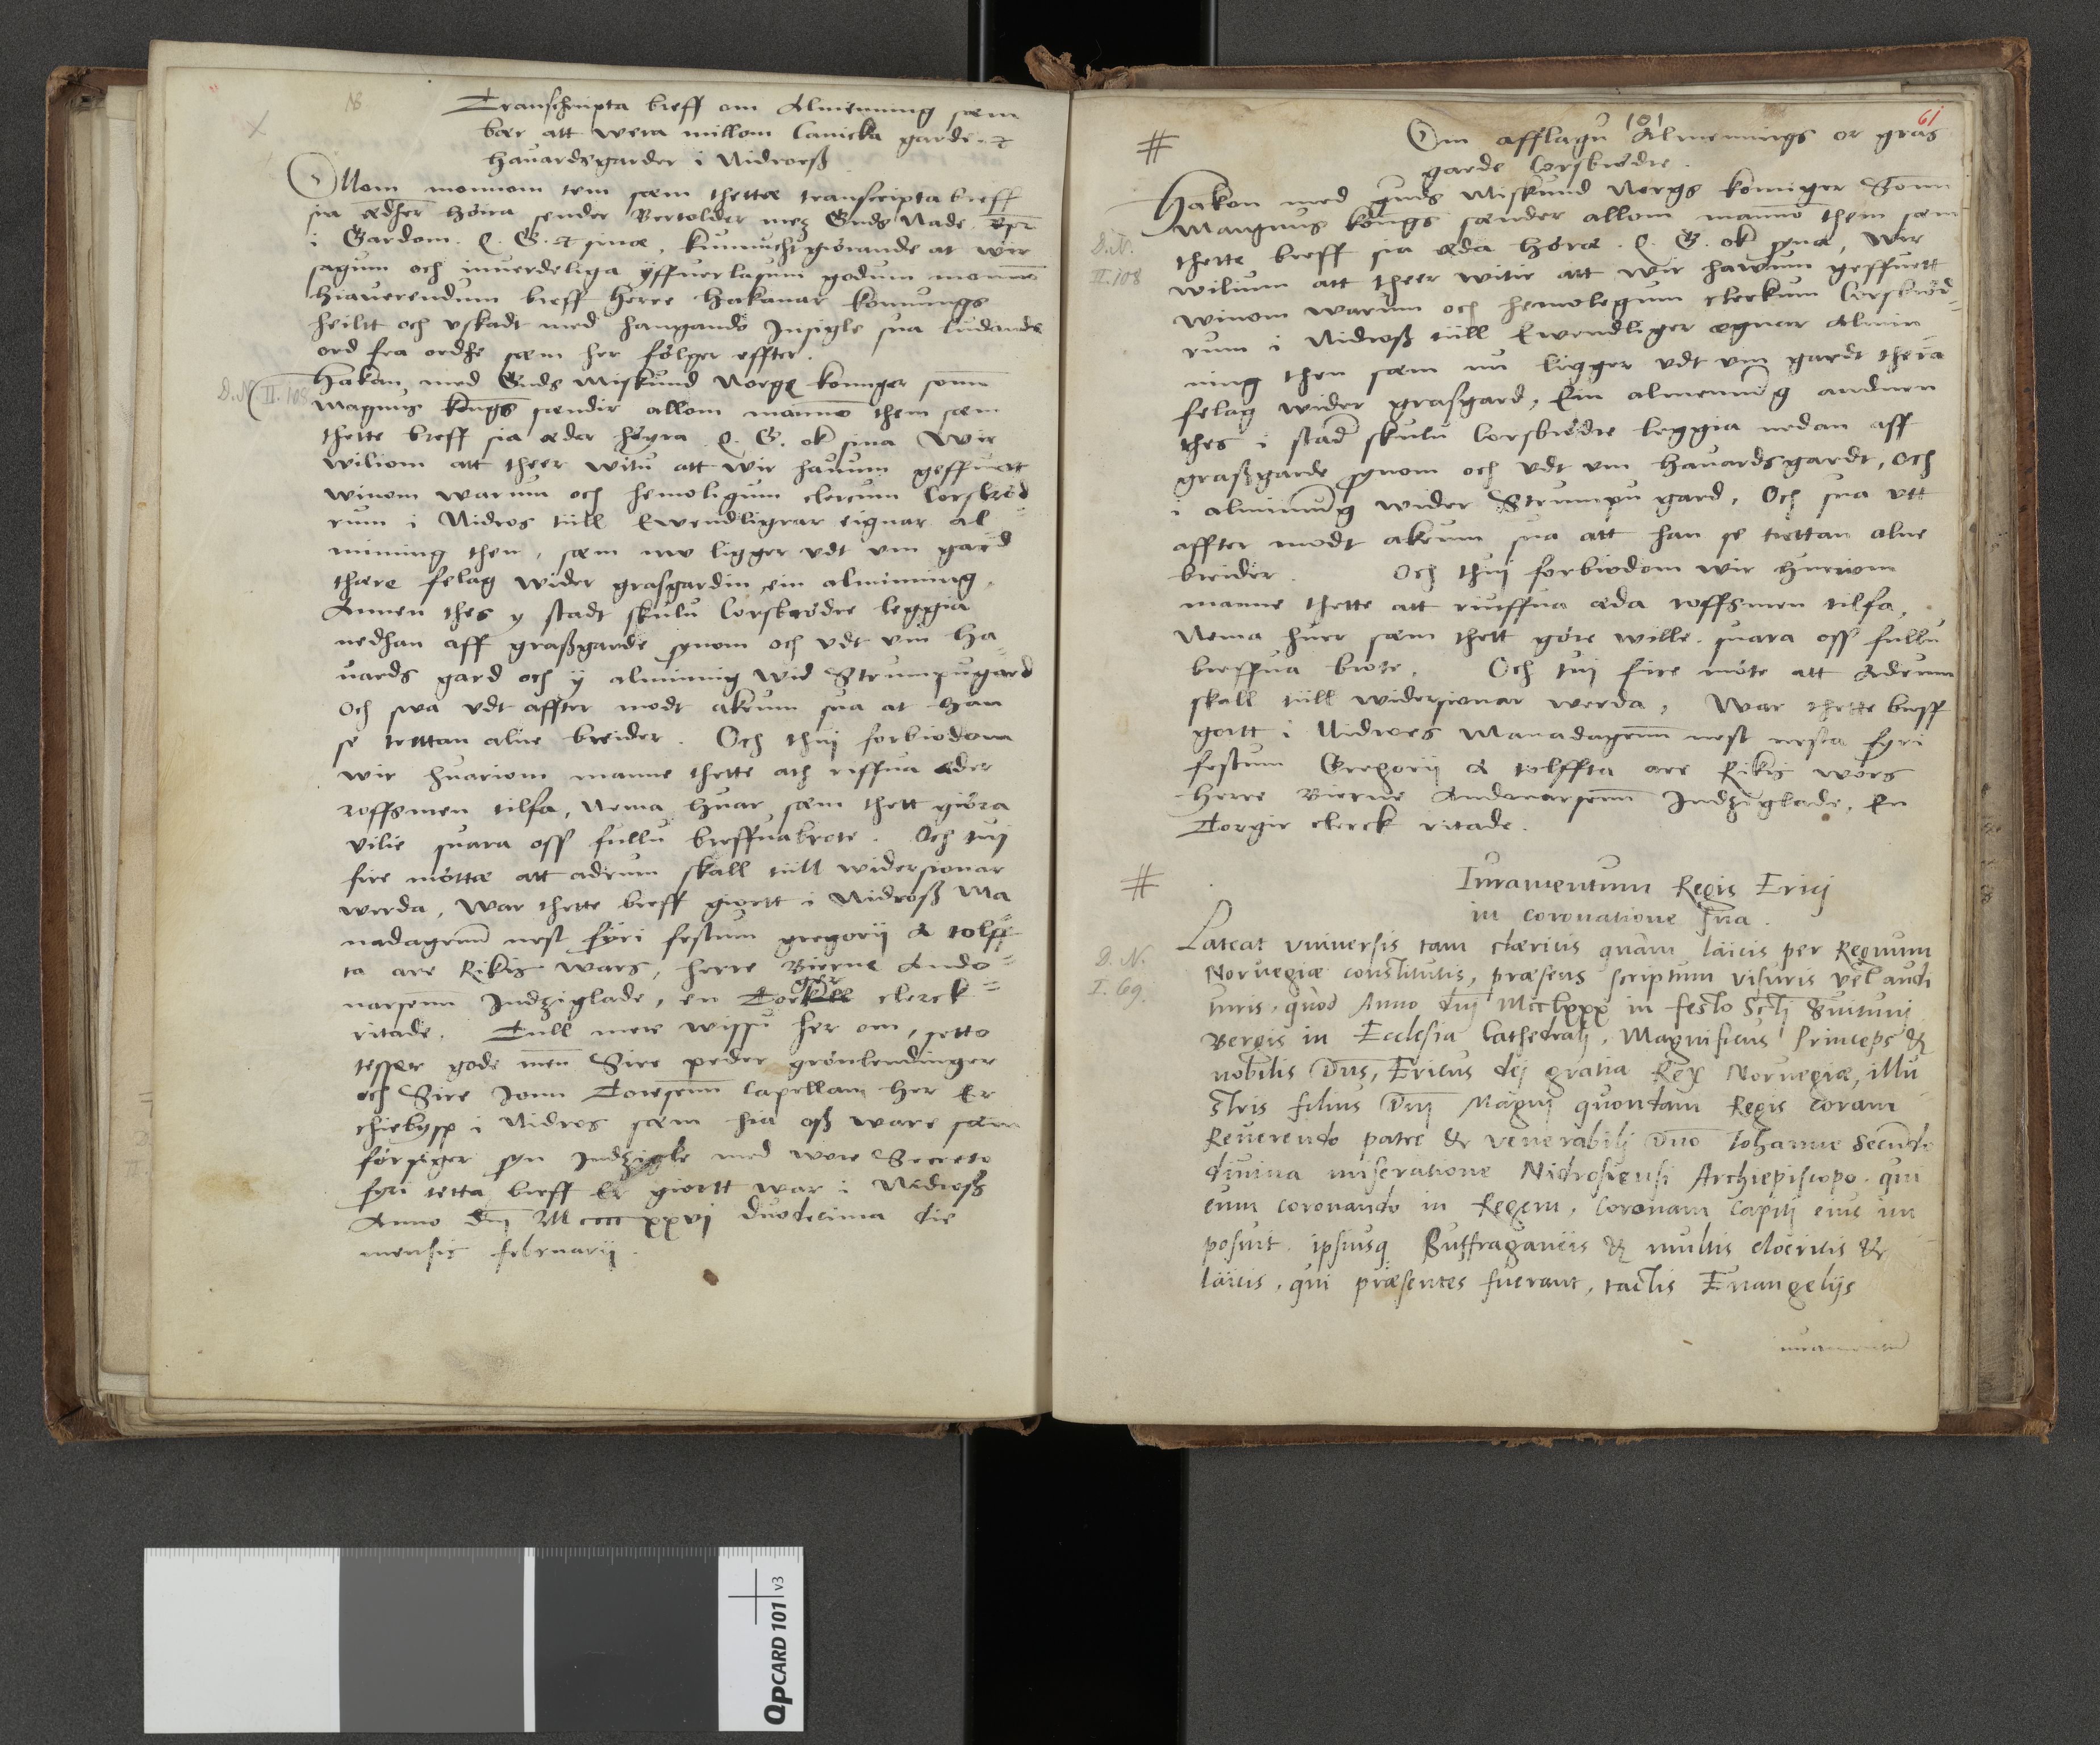 Transchripta breff om Almenning sæm
bær att wera millom Canicka garde. et
hauardsgarder i Nidroeß
Ollom monnom tem sæm thettæ transcripta breff
sia ædher höira sender Bertolder mez Guds Nade. Epr
i Gardom. Q. G. et sinæ, kunnucht giörande at wir
sagum och inuerdeliga yffuerlasum godum monnom
hiauerendum breff herre Hakanar konungs
heilit och vskadt med hangande Insigle sua ludande
ord fra ordhe sæm her fölger effter.
D.N. II. 108
Hakan med Guds Miskund Norgs konnger sonn
Magnus kongs sændir allom mannom them sæm
thette breff sia æder höyra Q. G. ok sina Wir
wiliom att theer witu att wir hauum geffuett
winom warum och hemoligum clercum Corsbrød
rum i Nidros tüll Ewendligrar eignar al
minning then, sæm nw ligger vdt vm gard
there felag wider grasgardin, ein alminning
Annen thes y stadt skulu Corsbrödre leggia
nedhan aff graßgarde synom och vdt vm Ha
uards gard och y alminnig wid Strumpugard
Och swa vdt affter modt akrum sua at han
se trettan alne breider. Och thuj forbiodom
wir huariom manne thette ath riffua æder
roffsmen tilfa, Nema huar sæm thett giöra
vilie suara oss fullu breffuabrote. Och tuj
fire möttæ att adrum skall tüll widersionar
werda, War thette breff giortt i Nidroß Ma
nadagenn nest fyri festum gregorij A tolff
ta are Rikis wars, herre Bierne Ando
narsenn Indziglade, en Torkell clerck
ger
ritade. Tüll mere wissu her om, setto
tesser gode menn Sire peder grönlendinger
och Sire Jonn Toresenn Capellan her Er
chiebysp i Nidros sæm hia oß ware sæm
försiger syn Indzigle med wore Secreto
fyri tetta breff Er giortt war i Nidroß
Anno Dnj Mccccxxvj duodecima die
mensis februarij.
101
61
Om afflagu Almennings or gras
garde Corsbrödre.
Hakon med guds Miskund Norgs konniger Sonn
Mangnus kongs sænder allom mannom them sæm
D.N.
II. 108
thette breff sia æda höræ. Q. G. ok syna, Wir
wilium att theer witie att wir hawum geffuett
winom warum och hemolegum clerkum Corsbröd
rum i Nidroß tüll Ewendliger ægnar Almin
ning then sæm nu ligger vdt vm gardt thera
felag wider grasgard, Ein almennig andnen
thes i stad skulu Corsbrödre leggia nedan aff
graßgarde synom och vdt vm hauardsgardt, Och
i alminnig wider Strumpu gard, Och sua vtt
affter modt akrum sua att han se trettan alne
breider. Och thuj forbiodom wir huariom
manne thette att riuffua æda roffsmen tilfa,
Nema huer sæm thett göre wille. suara oss fullu
breffua brote. Och tuj fire möte att Adrum
skall tüll widersionar werda, War thette breff
gortt i Nidroes Manadagenn nest nesta fyri
festum Gregorij A tolffta are Rikis wors
Herre Bierne Andonarsenn Indziglade, En
Torgir clerck ritade.
Iuramentum Regis Ericj
in coronatione sua.
Pateat vniuersis tam clæricis quàm läicis per Regnum
D. N.
I. 69.
Noruegiæ constitutis, præsens scriptum visuris vel audi
turis, quod Anno dnj Mcclxxx in festo Sctj Suituni
Bergis in Ecclesia Cathedralj, Magnificus Princeps &
nobilis Dns, Ericus dej gratia Rex Noruegiæ, illu
stris filius Dnj Magnj quondam Regis coram
Reuerendo patre & venerabilj Dno Iohanne Secundo
diuina miseratione Nidrosiensi Archiepiscopo. qui
eum coronando in Regem, Coronam Capitj eius im
posuit. ipsiusq Suffraganeis & multis cloericis &
läicis, qui præsentes fuerant, tactis Euangelijs
iuramentum